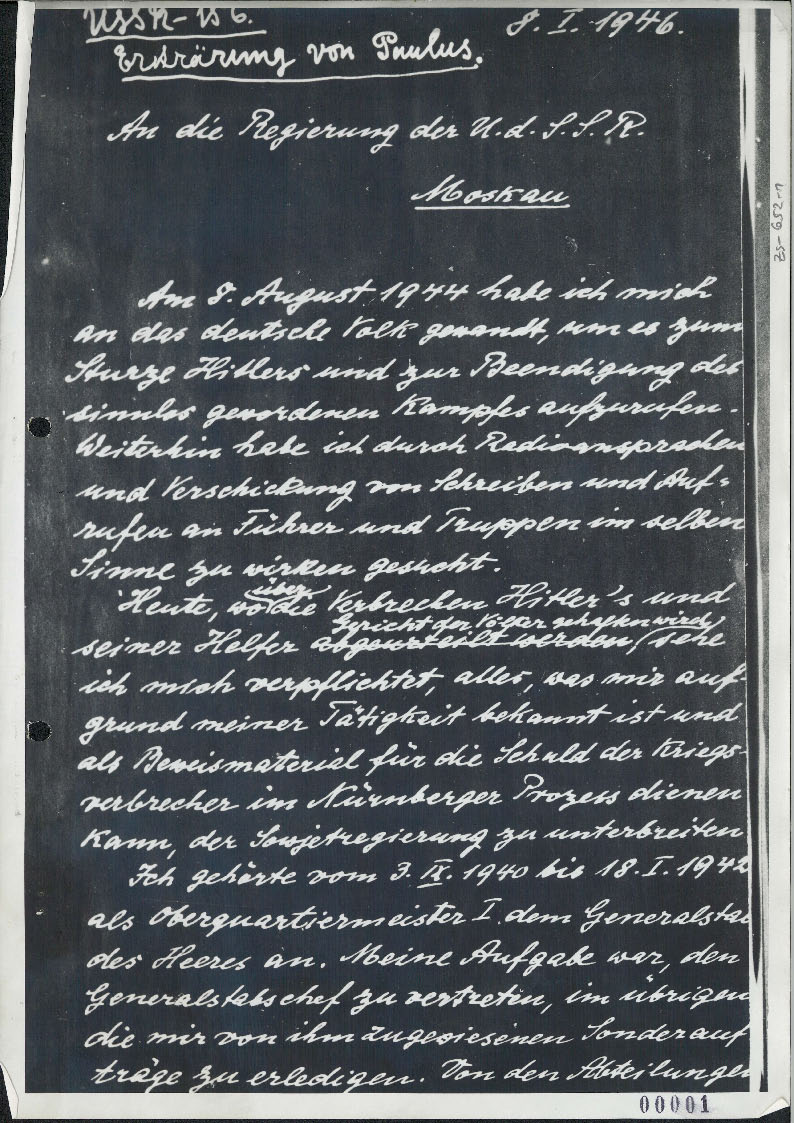 USSR-156. 8. I. 1946.
Erklärung von Paulus.
An die Regierung der U.d.S.S.R.
Moskau
ZS-652-1
Am 8. August 1944 habe ich mich
an das deutsche Volk gewandt, um es zum
Sturze Hitlers und zur Beendigung des
sinnlos gewordenen Kampfes aufzurufen.
Weiterhin habe ich durch Radioansprachen
und Verschickung von Schreiben und Auf-
rufen an Führer und Truppen im selben
Sinne zu wirken gesucht.
über
Heute, wo die Verbrechen Hitler's und
Gericht der Völker gehalten wird
seiner Helfer abgeurteilt werden, sehe
ich mich verpflichtet, alles, was mir auf-
grund meiner Tätigkeit bekannt ist und
als Beweismaterial für die Schuld der Kriegs-
verbrecher im Nürnberger Prozess dienen
kann, der Sowjetregierung zu unterbreiten
Ich gehörte vom 3. IX. 1940 bis 18. I. 1942
als Oberquartiermeister I. dem Generalstab
des Heeres an. Meine Aufgabe war, den
Generalstabschef zu vertreten, im übrigen
die mir von ihm zugewiesenen Sonderauf
träge zu erledigen. Von den Abteilungen
00001